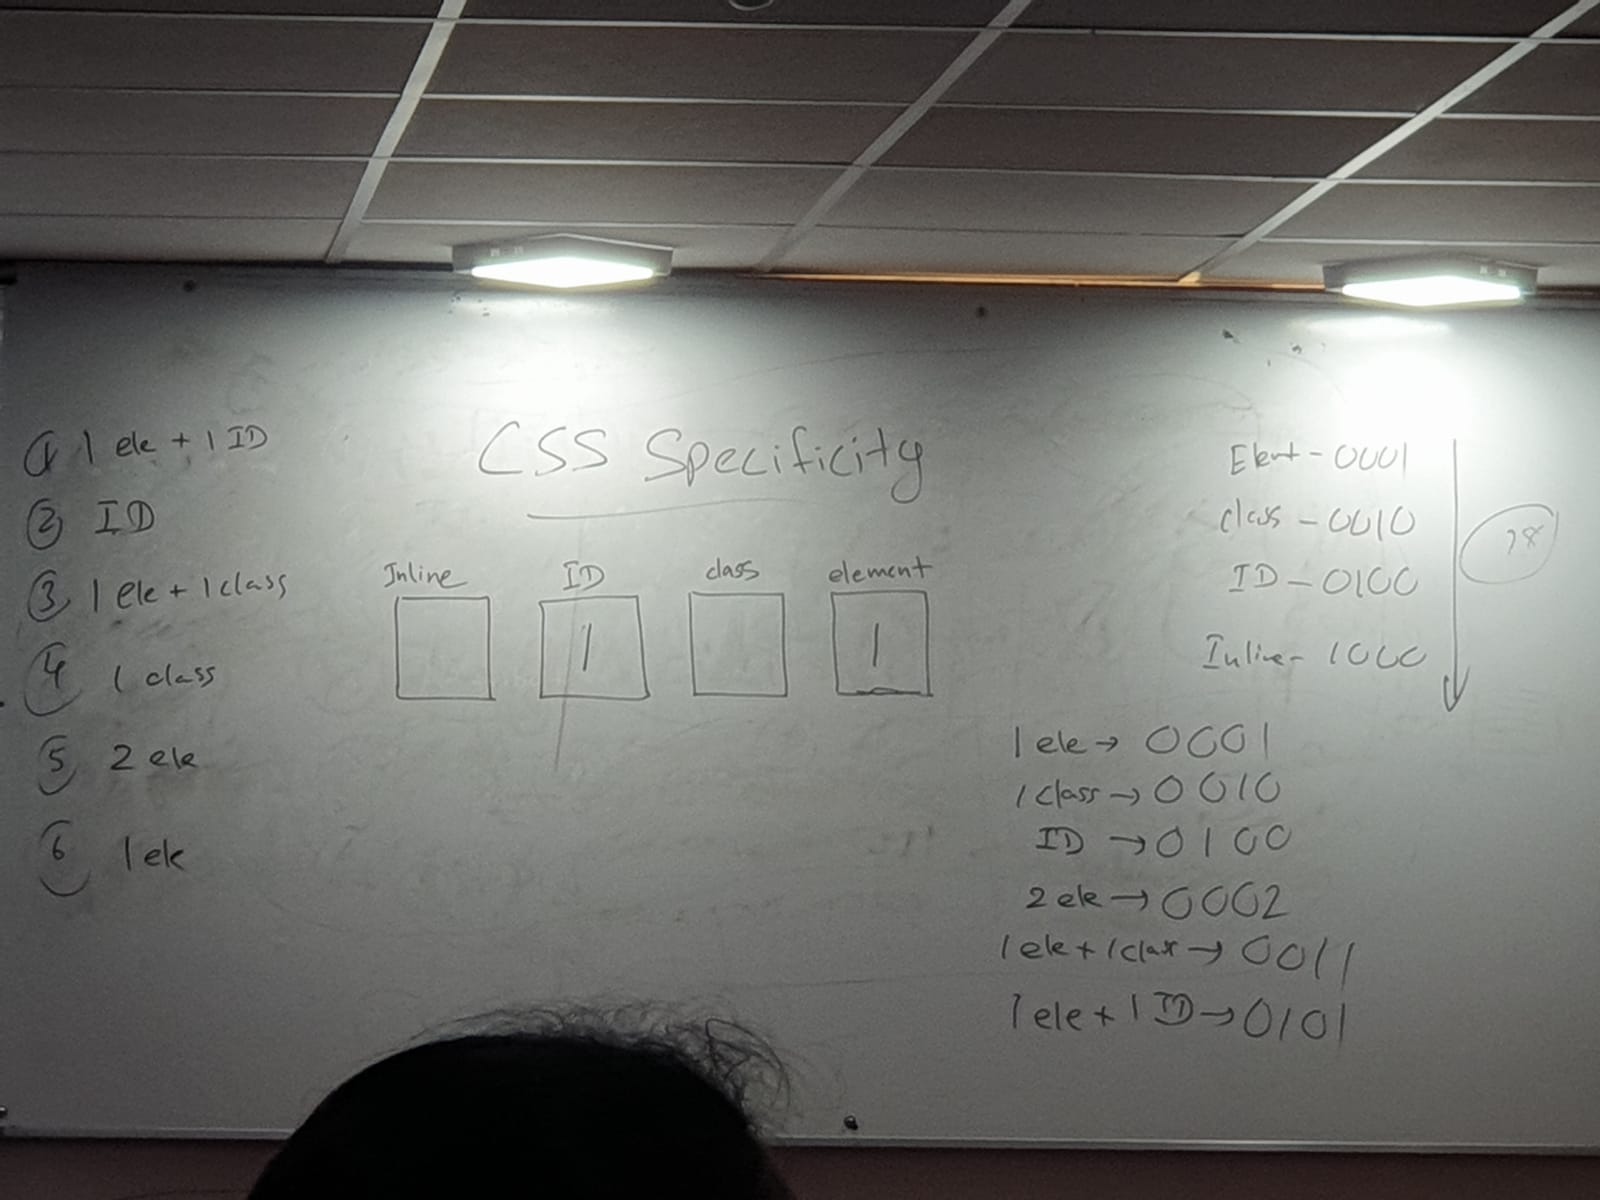 CSS Specificity
① 1 ele + 1 ID
② ID
③ 1 ele + 1 class
④ 1 class
⑤ 2 ele
⑥ 1 ele
Inline ID class element
1 1
Elent - 0001
class - 0010
ID - 0100
Inline - 1000
1 ele → 0001
1 class → 0010
ID → 0100
2 ele → 0002
1 ele + 1 class → 0011
1 ele + 1 ID → 0101